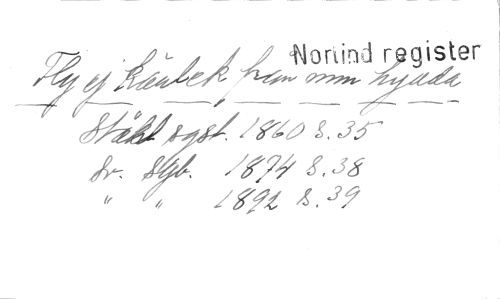 Norlind register
Fly ej kärlek från min hydda
Ståhl sgst. 1860 s. 35
Sv. Sgb. 1874 s. 38
" " 1892 s. 39